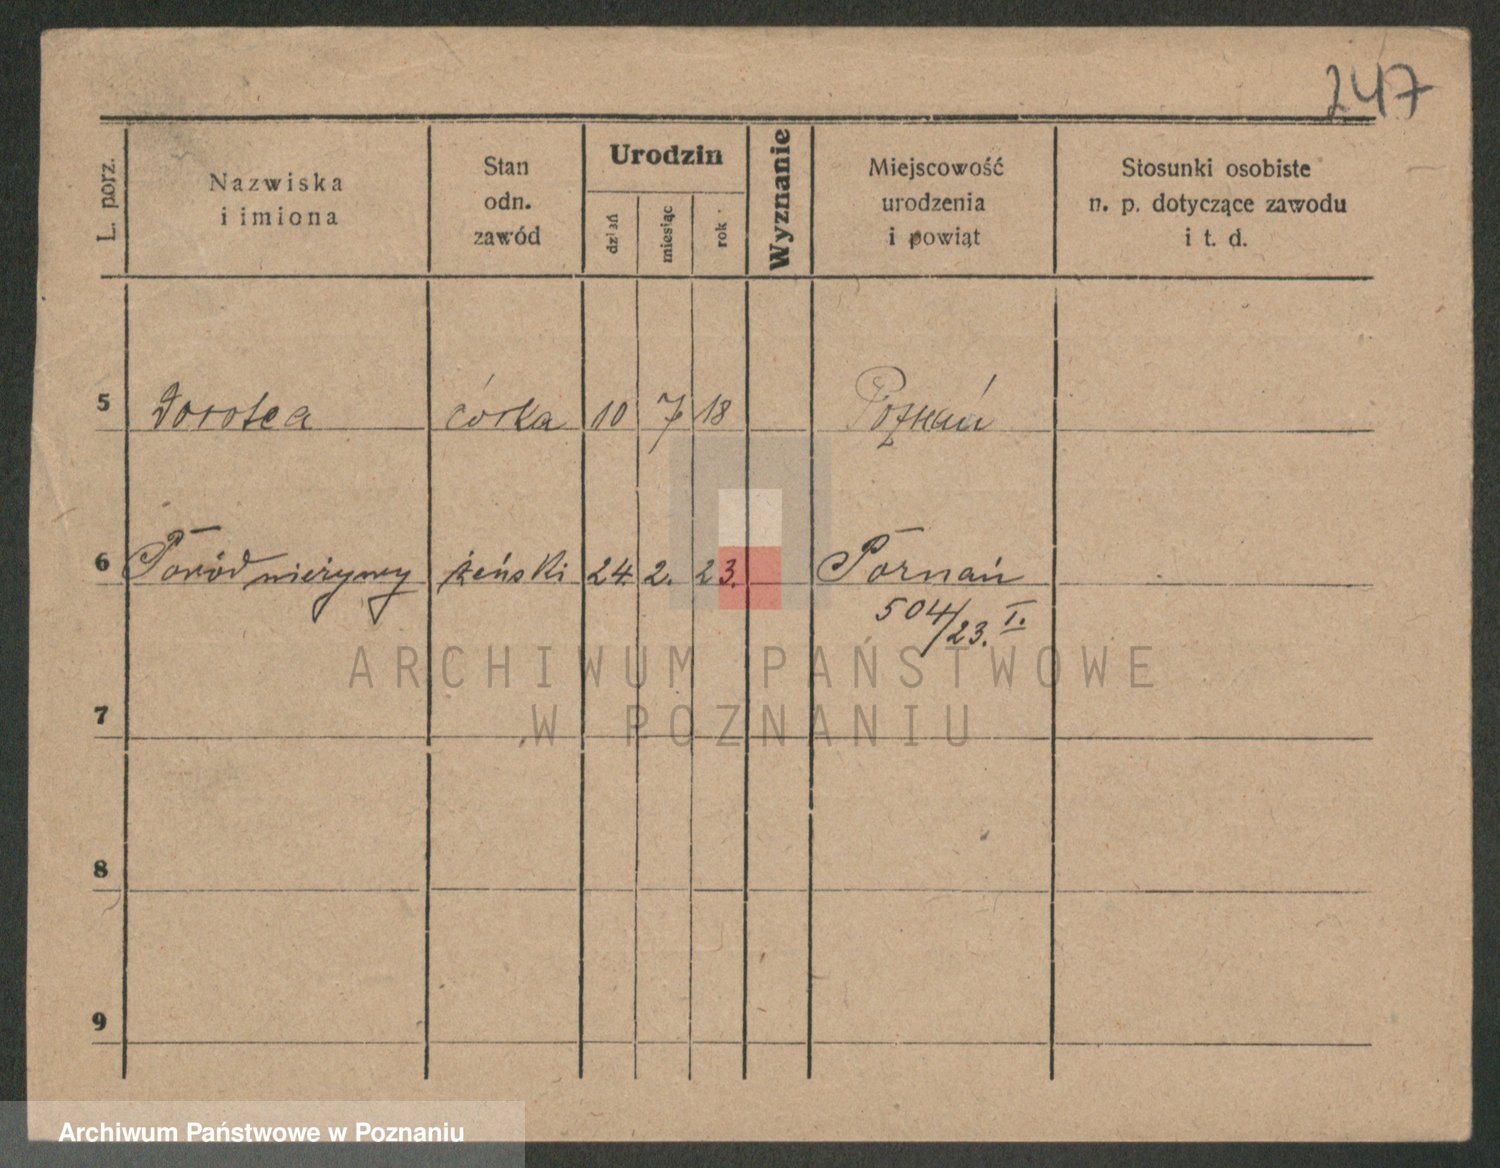 247
L. porz.
Nazwiska
i imiona
Stan
odn.
zawód
Urodzin
dzień
miesiąc
rok
Wyznanie
Miejscowość
urodzenia
i powiąt
Stosunki osobiste
n. p. dotyczące zawodu
i t. d.
5 Dorotea córka 10 7 18 Poznań
6 Poród nieżywy żeński 24 2. 23. Poznań
504/23. I.
ARCHIWUM PAŃSTWOWE
W POZNANIU
7
8
9
Archiwum Państwowe w Poznaniu